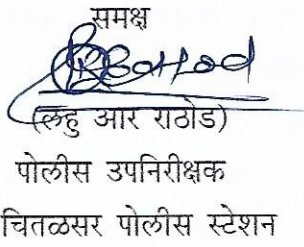 समक्ष
RRathod
(लहु आर राठोड)
पोलीस उपनिरीक्षक
चितळसर पोलीस स्टेशन